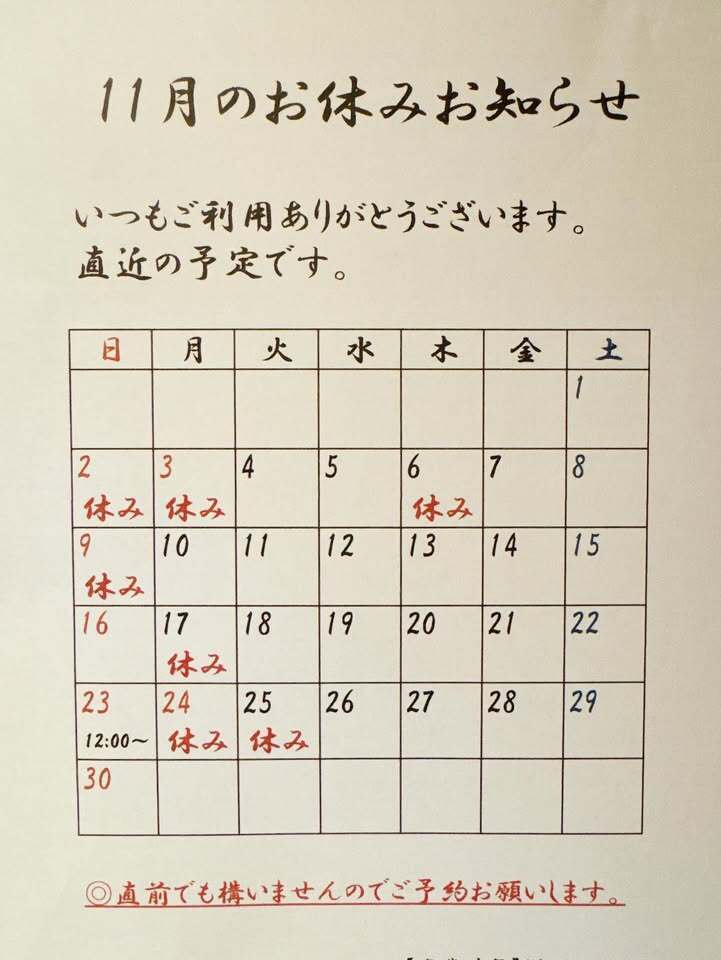 11月のお休みお知らせ
いつもご利用ありがとうございます。
直近の予定です。
日 月 火 水 木 金 土
1
2 3 4 5 6 7 8
休み 休み 休み
9 10 11 12 13 14 15
休み
16 17 18 19 20 21 22
休み
23 24 25 26 27 28 29
12:00～ 休み 休み
30
◎直前でも構いませんのでご予約お願いします。